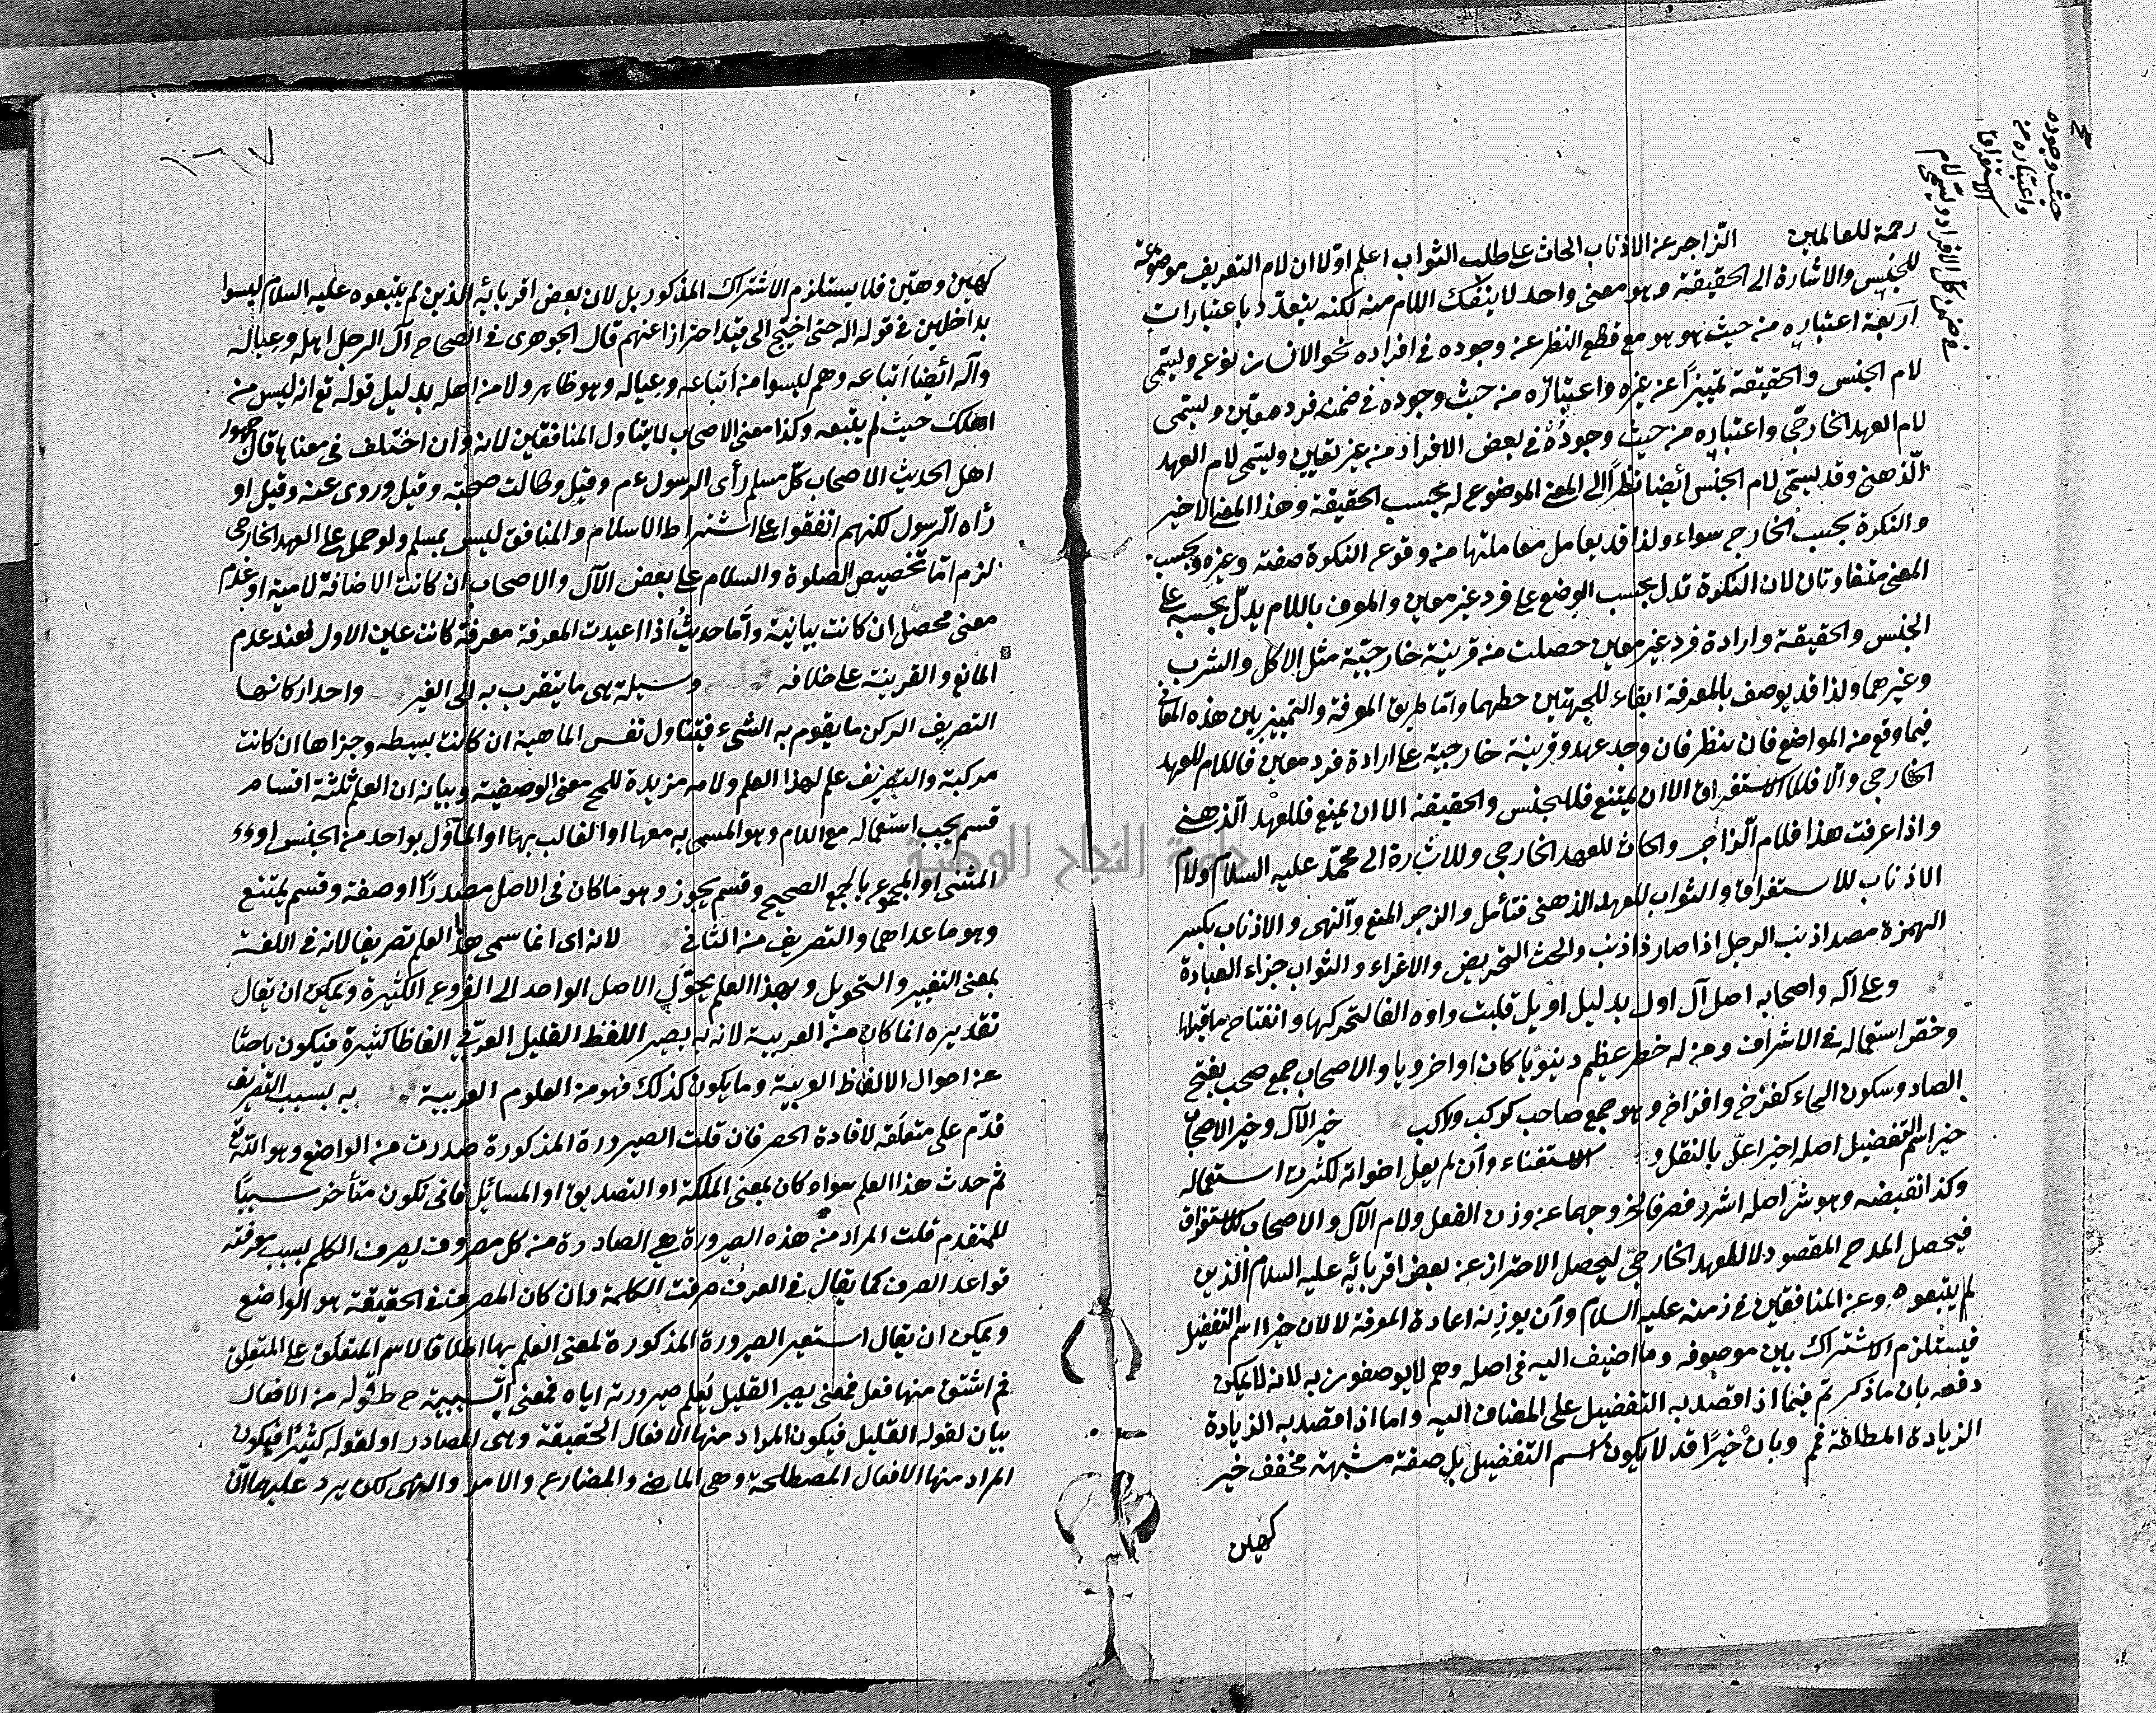 رحمة للعالمين الزاجر عن الاذناب الحاث على طلب الثواب اعلم اولا ان لام التعريف موضوعة
للجنس والاشارة الى الحقيقة وهو معنى واحد لا ينفك اللام منه لكنه يتعدد باعتبارات
اربعة اعتباره من حيث هو هو مع قطع النظر عن وجوده في افراده نحو الانسان نوع ويسمى
لام الجنس والحقيقة تمييزا عن غيره واعتباره من حيث وجوده في ضمن فرد معين ويسمى
لام العهد الخارجي واعتباره من حيث وجوده في بعض الافراد من غير تعيين ويسمى لام العهد
الذهني وقد يسمى لام الجنس أيضا نظرا الى المعنى الموضوع له بحسب الحقيقة وهذا المعنى الاخير
والنكرة بحسب الخارج سواء ولذا قد يعامل معاملتها من وقوع النكرة صفته وغيره وبحسب
المعنى متفاوتان لان النكرة تدل بحسب الوضع على فرد غير معين والمعرف باللام يدل بحسبه على
الجنس والحقيقة وارادة فرد غير معين حصلت من قرينة خارجية مثل الاكل والشرب
وغيرهما ولذا قد يوصف بالمعرفة ايفاء للجهتين حظهما واما طريق المعرفة والتمييز بين هذه المعاني
فيما وقع من المواضع فان ينظر فان وجد عهد وقرينة خارجية على ارادة فرد معين فاللام للعهد
الخارجي والا فللاستغراق الا ان يمتنع فللجنس والحقيقة الا ان يمنع فللعهد الذهني
واذا عرفت هذا فلام الزاجر والحاث للعهد الخارجي وللاشارة الى محمد عليه السلام ولام
الاذناب للاستغراق والثواب للعهد الذهني فتأمل والزجر المنع والنهي والاذناب بكسر
الهمزة مصدر اذنب الرجل اذا صار ذا ذنب والحث التحريض والاغراء والثواب جزاء العبادة
وعلى آله واصحابه اصل آل اول بدليل اويل قلبت واوه الفا لتحركها وانفتاح ما قبلها
وخص استعماله في الاشراف ومن له خطر عظيم دينويا كان او اخرويا والاصحاب جمع صحب بفتح
الصاد وسكون الحاء كفرخ وافراخ وهو جمع صاحب كركب وراكب خير الآل وخير الاصحاب
خير اسم التفضيل اصله اخير اعل بالنقل و الاستغناء وان لم يعل اخواته لكثرت استعماله
وكذا نقيضه وهو شر اصله اشرر فصرفا لخروجهما عن وزن الفعل ولام الآل والاصحاب للاستغراق
فيحصل المدح المقصود لا للعهد الخارجي ليحصل الاحتراز عن بعض اقربائه عليه السلام الذين
لم يتبعوه وعن المنافقين في زمنه عليه السلام وان يوزنه اعادة المعرفة لا لان خيرا اسم التفضيل
فيستلزم الاشتراك بين موصوفه وما اضيف اليه في اصله وهم لا يوصفون به لانه لا يمكن
دفعه بان ما ذكر تم فيما اذا قصد به التفضيل على المضاف اليه واما اذا قصد به الزيادة
الزيادة المطلقة فمم وبان خيرا قد لا يكون اسم التفضيل بل صفة مشبهة مخفف خير
كهين
في ضمن كل الافراد ويسمى لام
الاستغراق
واعتباره من
حيث وجوده
صح
كهين وهين فلا يستلزم الاشتراك المذكور بل لان بعض اقربائه الذين لم يتبعوه عليه السلام ليسوا
بداخلين في قوله آله حتى احتيج الى قيد احترازا عنهم قال الجوهري في الصحاح آل الرجل اهله وعياله
وآله أيضا اتباعه وهم ليسوا من اتباعه وعياله وهو ظاهر ولا من اهله بدليل قوله تع انه ليس من
اهلك حيث لم يتبعه وكذا معنى الاصحاب لا يتناول المنافقين لانه وان اختلف في معناها قال جمهور
اهل الحديث الاصحاب كل مسلم رأى الرسول عم وقيل وطالت صحبته وقيل وروى عنه وقيل او
رآه الرسول لكنهم اتفقوا على اشتراط الاسلام والمنافق ليس بمسلم ولو حمل على العهد الخارجي
لزم اما تخصيص الصلوة والسلام على بعض الآل والاصحاب ان كانت الاضافة لامية او عدم
معنى محصل ان كانت بيانية واما حديث اذا اعيدت المعرفة معرفة كانت عين الاول فعند عدم
المانع والقرينة على خلافه قوله وسيلة هي ما يتقرب به الى الغير واحد اركانها
التصريف الركن ما يقوم به الشيء فيتناول نفس الماهية ان كانت بسيطه وجزاها ان كانت
مركبة والتصريف علم لهذا العلم ولامه مزيدة للمح معنى الوصفية وبيانه ان العلم ثلثة اقسام
قسم يجب استعماله مع اللام وهو المسمى به معها او الغالب بها او المأول بواحد من الجنس او
المثنى او المجموع بالجمع الصحيح وقسم يجوز وهو ما كان في الاصل مصدرا او صفة وقسم يمتنع
وهو ما عداهما والتصريف من الثاني لانه اى انما سمى هذا العلم تصريفا لانه في اللغة
بمعنى التغيير والتحويل وبهذا العلم يحول الاصل الواحد الى الفروع الكثيرة ويمكن ان يقال
تقديره انما كان من العربية لانه به يصير اللفظ القليل العربي الفاظا كثيرة فيكون باحثا
عن احوال الالفاظ العربية وما يكون كذلك فهو من العلوم العربية قوله به بسبب التصريف
قدم على متعلقه لافادة الحصر فان قلت الصيرورة المذكورة صدرت من الواضع وهو الله تع
ثم حدث هذا العلم سواء كان بمعنى الملكة او التصديق او المسائل فانى تكون متأخر سببا
للمتقدم قلت المراد من هذه الصيرورة هي الصادرة من كل مصروف يصرف الكلم بسبب معرفته
قواعد الصرف كما يقال في العرف صرفت الكلمة وان كان المصرف في الحقيقة هو الواضع
ويمكن ان يقال استعير الصيرورة المذكورة لمعنى العلم بها اطلاقا لاسم المتعلق على المتعلق
ثم اشتق منها فعل فمعنى يصير القليل يعلم صيرورته اياه فمعنى السببية ح ط قوله من الافعال
بيان لقوله القليل فيكون المراد منها الافعال الحقيقة وهي المصادر او لقوله كثيرا فيكون
المراد منها الافعال المصطلحة وهي الماضي والمضارع والامر والنهى لكن يرد عليهما ان
جامعة النجاح الوطنية